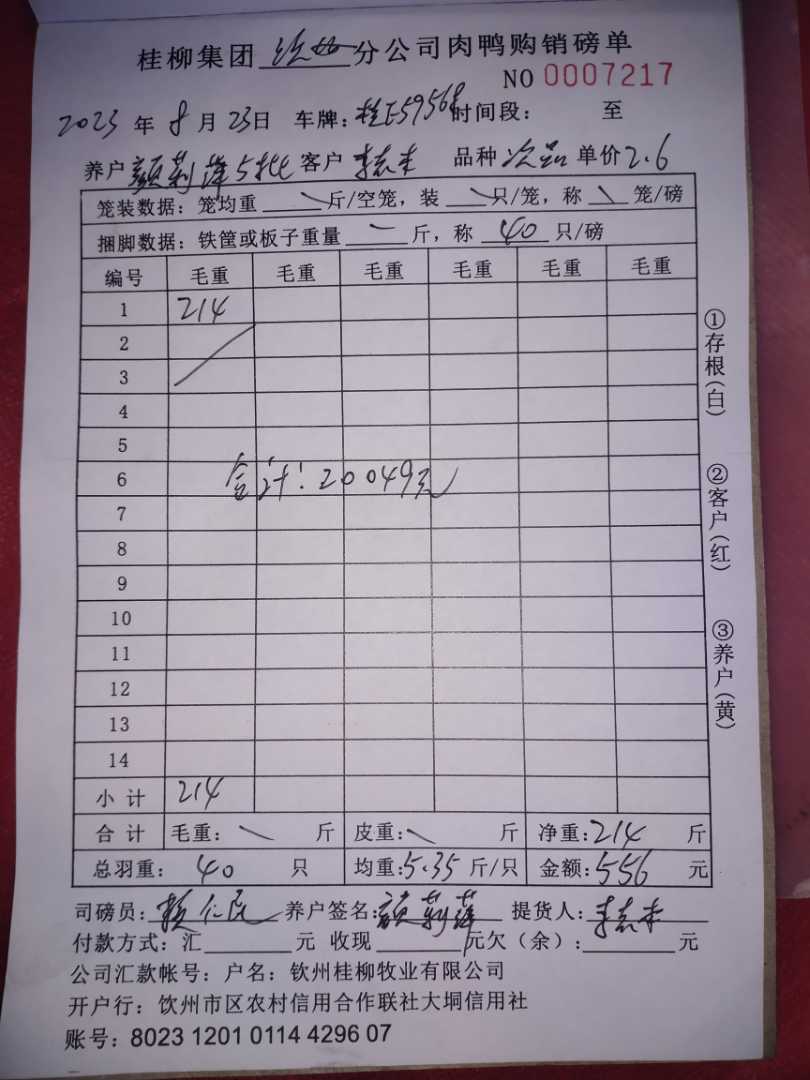 桂柳集团 分公司肉鸭购销磅单
NO 0007217
2023 年 8 月 23日 车牌：桂E59568 时间段： 至
养户 颜莉萍5批 客户 李志 品种 次品 单价2.6
笼装数据：笼均重 斤/空笼，装 只/笼，称 笼/磅
捆脚数据：铁筐或板子重量 一 斤，称 40 只/磅
编号 毛重 毛重 毛重 毛重 毛重 毛重
1 214
2
3
4
5
6 合计：20049元
7
8
9
10
11
12
13
14
小 计 214
合 计 毛重： 斤 皮重： 斤 净重：214 斤
总羽重： 40 只 均重：5.35 斤/只 金额：556 元
司磅员： 仁民 养户签名：颜莉萍 提货人：李志
付款方式：汇 元 收现 元欠（余）： 元
公司汇款帐号：户名：钦州桂柳牧业有限公司
开户行：饮州市区农村信用合作联社大垌信用社
账号：8023 1201 0114 4296 07
①存根（白）
②客户（红）
③养户（黄）